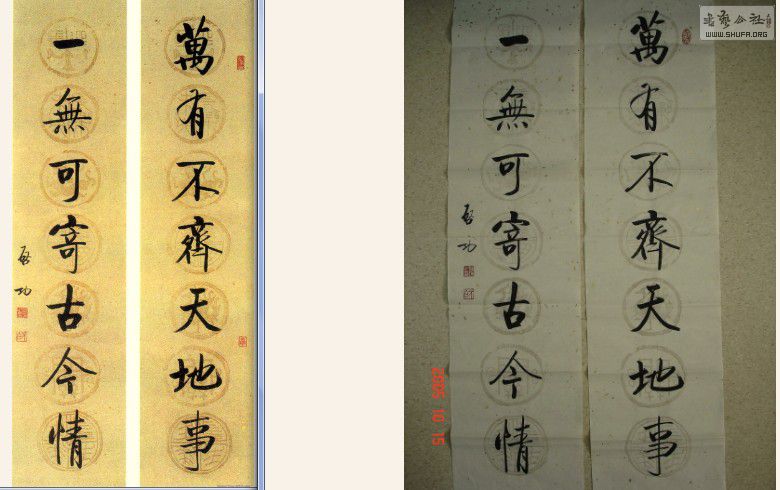 萬有不齊天地事
一無可寄古今情
啓功
書藝公社
WWW.SHUFA.ORG
萬有不齊天地事
一無可寄古今情
啓功
2005 10 15